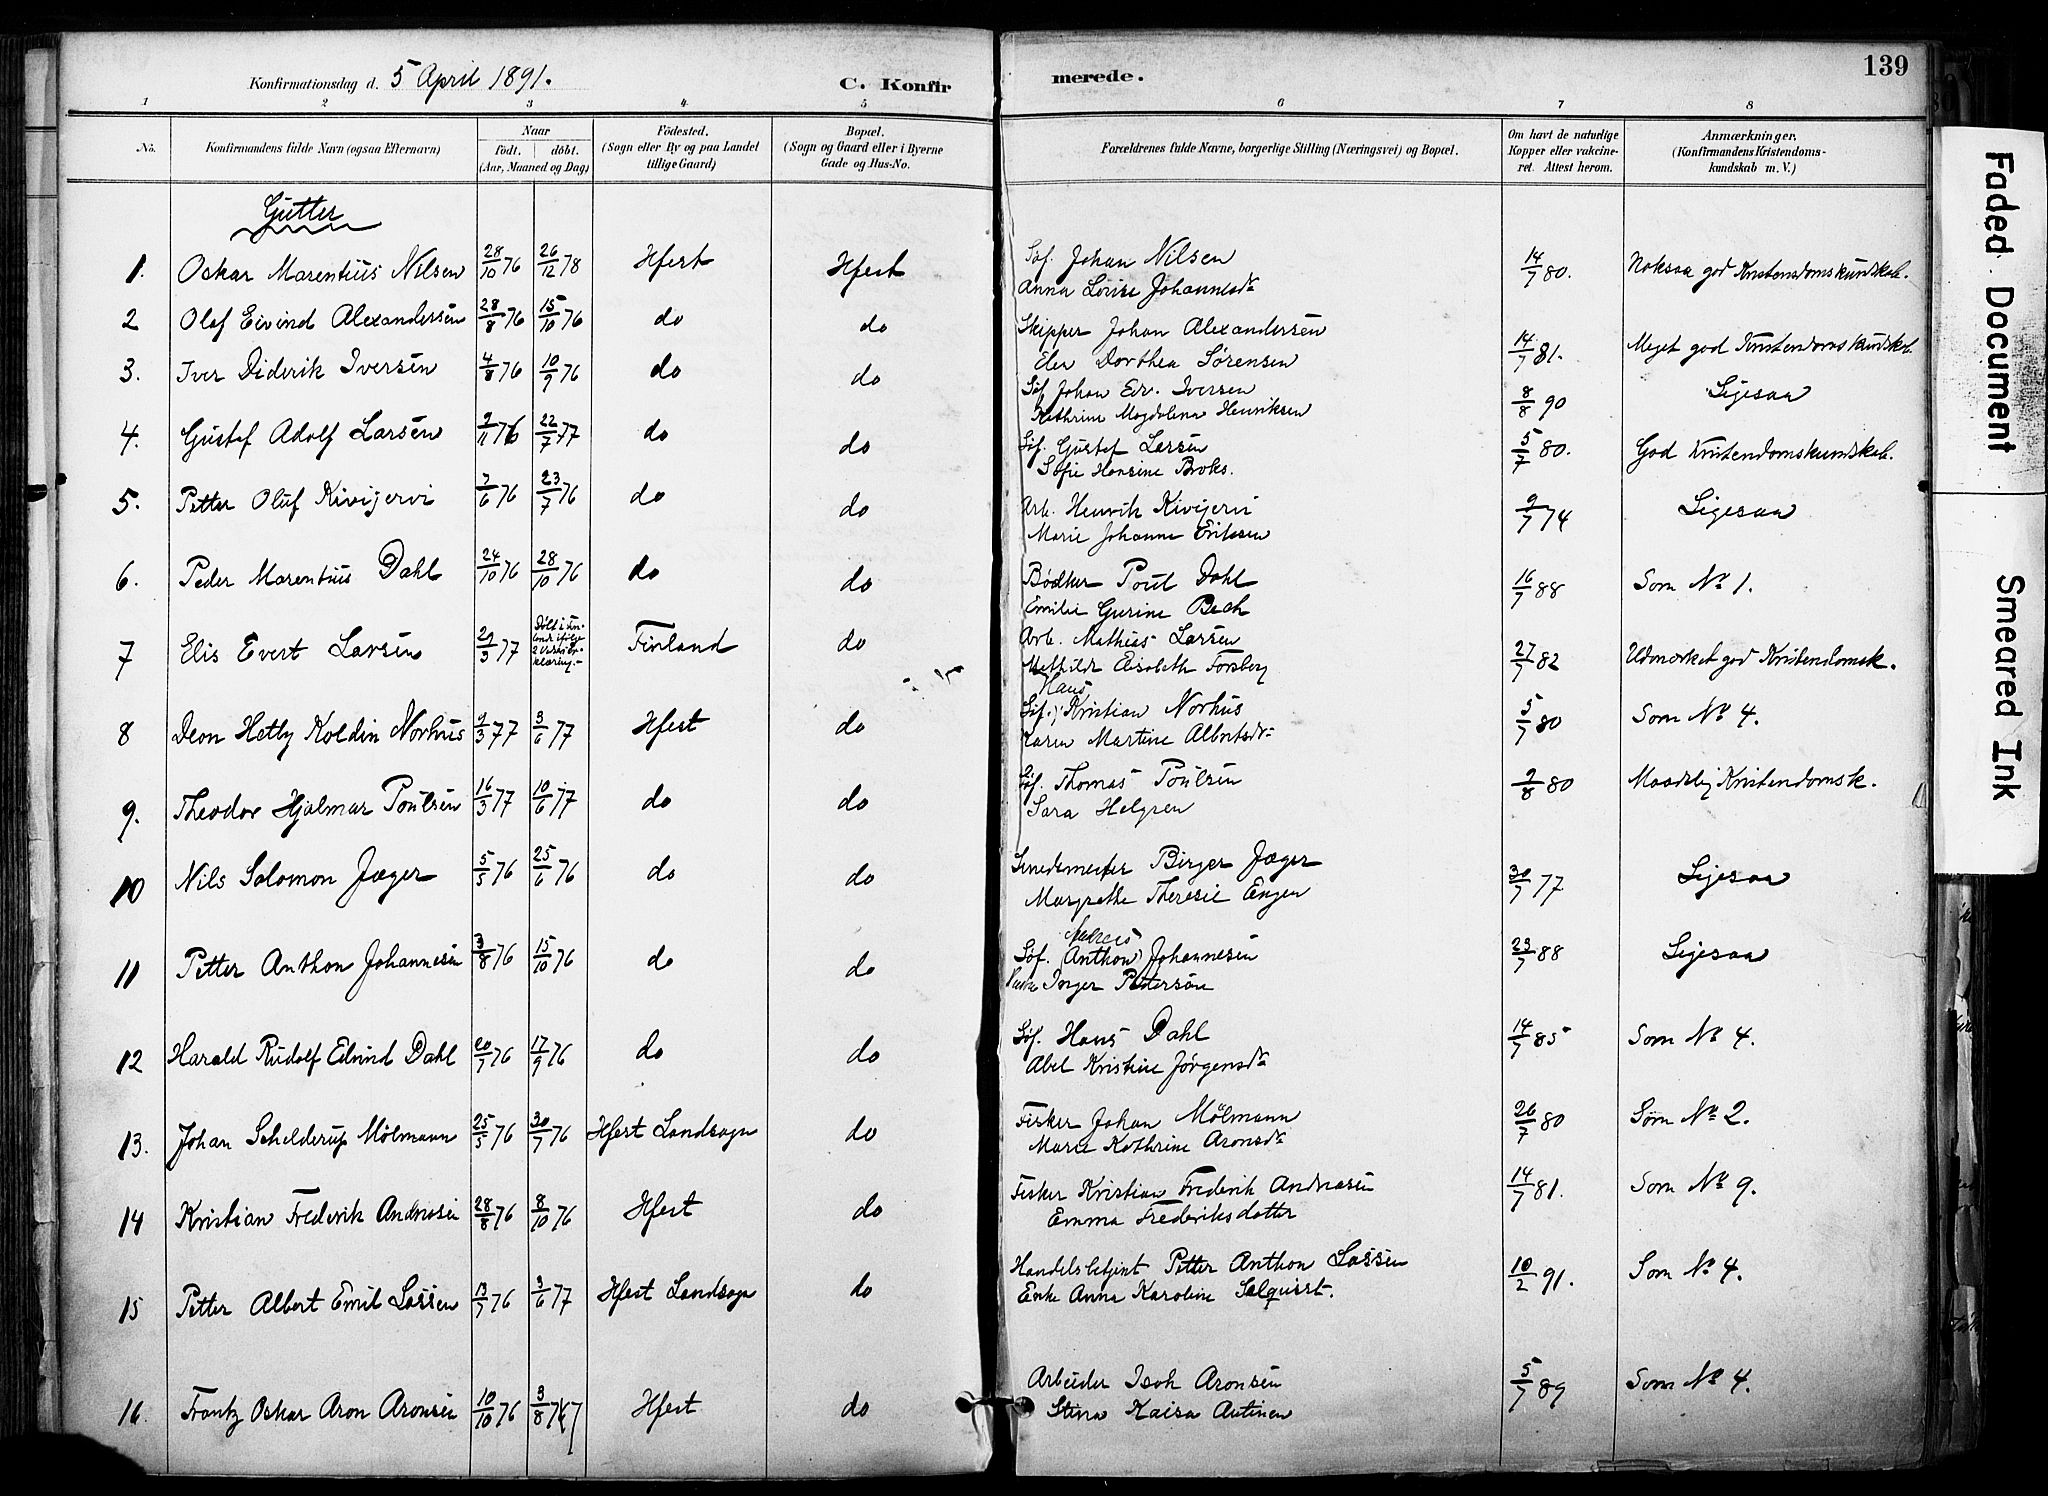 139
Konfirmationsdag d. 5 April 1891. C. Konfirmerede.
1 2 3 4 5 6 7 8
No. Konfirmandens fulde Navn (ogsaa Efternavn) Naar Født. døbt. (Aar, Maaned og Dag) Fødested. (Sogn eller By og paa Landet tillige Gaard) Bopæl. (Sogn og Gaard eller i Byerne Gade og Hus-No. Forældrenes fulde Navne, borgerlige Stilling (Næringsvei) og Bopæl. Om havt de naturlige Kopper eller vakcineret. Attest herom. Anmærkninger. (Konfirmandens Kristendomskundskab m. V.)
Gutter
1. Oskar Marentius Nilsen 28/10 76 26/12 78 Hfest Hfest Søf. Johan Nilsen 14/7 80. Noksaa god Kristendomskundskab.
Anna Lovise Johannesdr
2 Olaf Eivind Alexandersen 28/8 76 15/10 76 do do Skipper Johan Alexandersen 14/7 81. Meget god Kristendomskundskab.
Elen Dorthea Sørensen
3. Iver Diderik Iversen 4/8 76 10/9 76 do do Søf. Johan Edv. Iversen 8/8 90 Ligesaa
Kathrine Magdalena Henriksen
4. Gustaf Adolf Larsen 9/11 76 22/7 77 do do Søf. Gustaf Larsen 5/7 80. God Kristendomskundskab.
Sofie Hansine Broks.
5. Petter Oluf Kivijervi 7/6 76 23/7 76 do do Arb. Henrik Kivijervi 9/7 74 Ligesaa
Marie Johanne Eriksen
6. Peder Marentius Dahl 24/10 76 28/10 76 do do Bødker Poul Dahl 16/7 88 Som No 1.
Emilie Gurine Bech
7 Elis Evert Larsen 29/3 77 Døbt i Finland ifølge Finland do Arb. Mathias Larsen 27/7 82 Udmærket god Kristendomsk.
Mathilde Elisabeth Forsberg
Hans
8 Deon Hetby Koldin Norhus 9/3 77 3/6 77 Hfest do Søf. Kristian Norhus 5/7 80 Som No 4.
Karen Martine Albrtsdr
9. Theodor Hjalmar Poulsen 16/3 77 10/6 77 do do Søf. Thomas Poulsen 9/8 80 Maadelig Kristendomsk.
Sara Helgren
10 Nils Solomon Jæger 5/5 76 25/6 76 do do Smedemester Birger Jæger 30/7 77 Ligesaa
Margrethe Theresie Engen
11 Petter Anthon Johannesen 3/8 76 15/10 76 do do Søf. (Anthon) Johannesen 23/7 88 Ligesaa
Inger Pedersen
12 Harald Rudolf Edvind Dahl 20/7 76 17/9 76 do do Søf. Hans Dahl 14/7 85 Som No 4.
Abel Kristine Jørgensdr
13. Johan Schelderup Mølmann 25/5 76 30/7 76 Hfest Landsogn do Fisker Johan Mølmann 26/7 80 Som No 2.
Marie Kathrine Aronsdr
14 Kristian Frederik Andreasen 28/8 76 8/10 76 Hfest do Fisker Kristian Frederik Andreasen 14/7 81. Som No 9.
Emma Frederiksdatter
15 Petter Albert Emil Lassen 13/7 76 3/6 77 Hfest Landsogn do Handelsbetjent Petter Anthon Lassen 10/2 91. Som No 4.
Enke Anna Karoline Selquist.
16. Frantz Oskar Aron Aronsen 10/10 76 3/8 77 Hfest do Arbeider Isak Aronsen 5/7 89 Som No 4.
Stina Kaisa Autinen
Faded Document
Smeared Ink